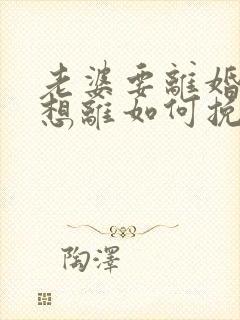 老婆要離婚
想離如何挽
陶澤